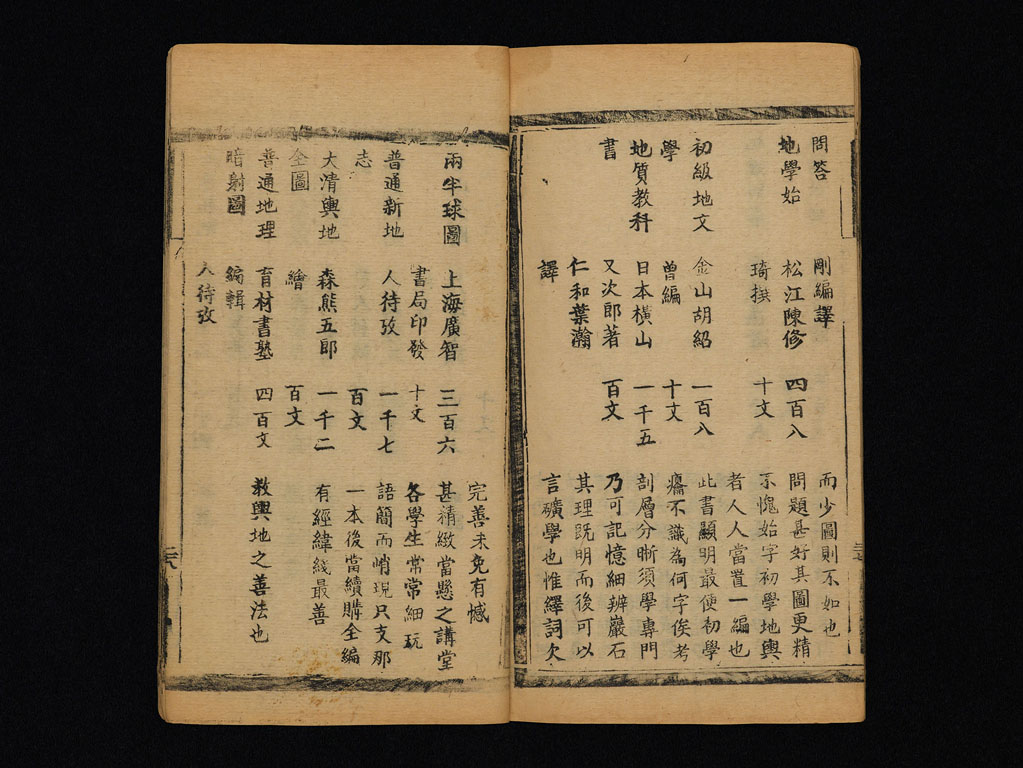 問答 剛編譯 而少圖則不如也
地學始 松江陳修 四百八 問題甚好其圖更精
琦撰 十文 不愧始字初學地輿
者人人當置一編也
初級地文 金山胡紹 一百八 此書顯明最便初學
學 曾編 十文 不識為何字俟考
地質教科 日本橫山 一千五 剖層分晰須學專門
書 又次郎著 百文 乃可記憶細辨巖石
仁和葉瀚 其理既明而後可以
譯 言礦學也惟繹詞欠
完善未免有憾
兩半球圖 上海廣智 三百六 甚精緻當懸之講堂
書局印發 十文 各學生常常細玩
普通新地 人待攷 一千七 語簡而悄現只支那
志 百文 一本後當續購全編
大清輿地 森熊五郎 一千二 有經緯綫最善
全圖 繪 百文
普通地理 育材書塾 四百文 教輿地之善法也
暗射圖 編輯
人待攷